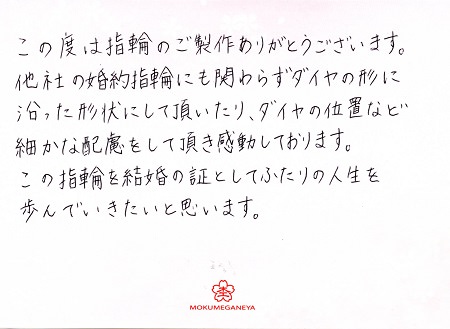 この度は指輪のご製作ありがとうございます。
他社の婚約指輪にも関わらずダイヤの形に
沿った形状にして頂いたり、ダイヤの位置など
細かな配慮をして頂き感動しております。
この指輪を結婚の証としてふたりの人生を
歩んでいきたいと思います。
MOKUMEGANEYA